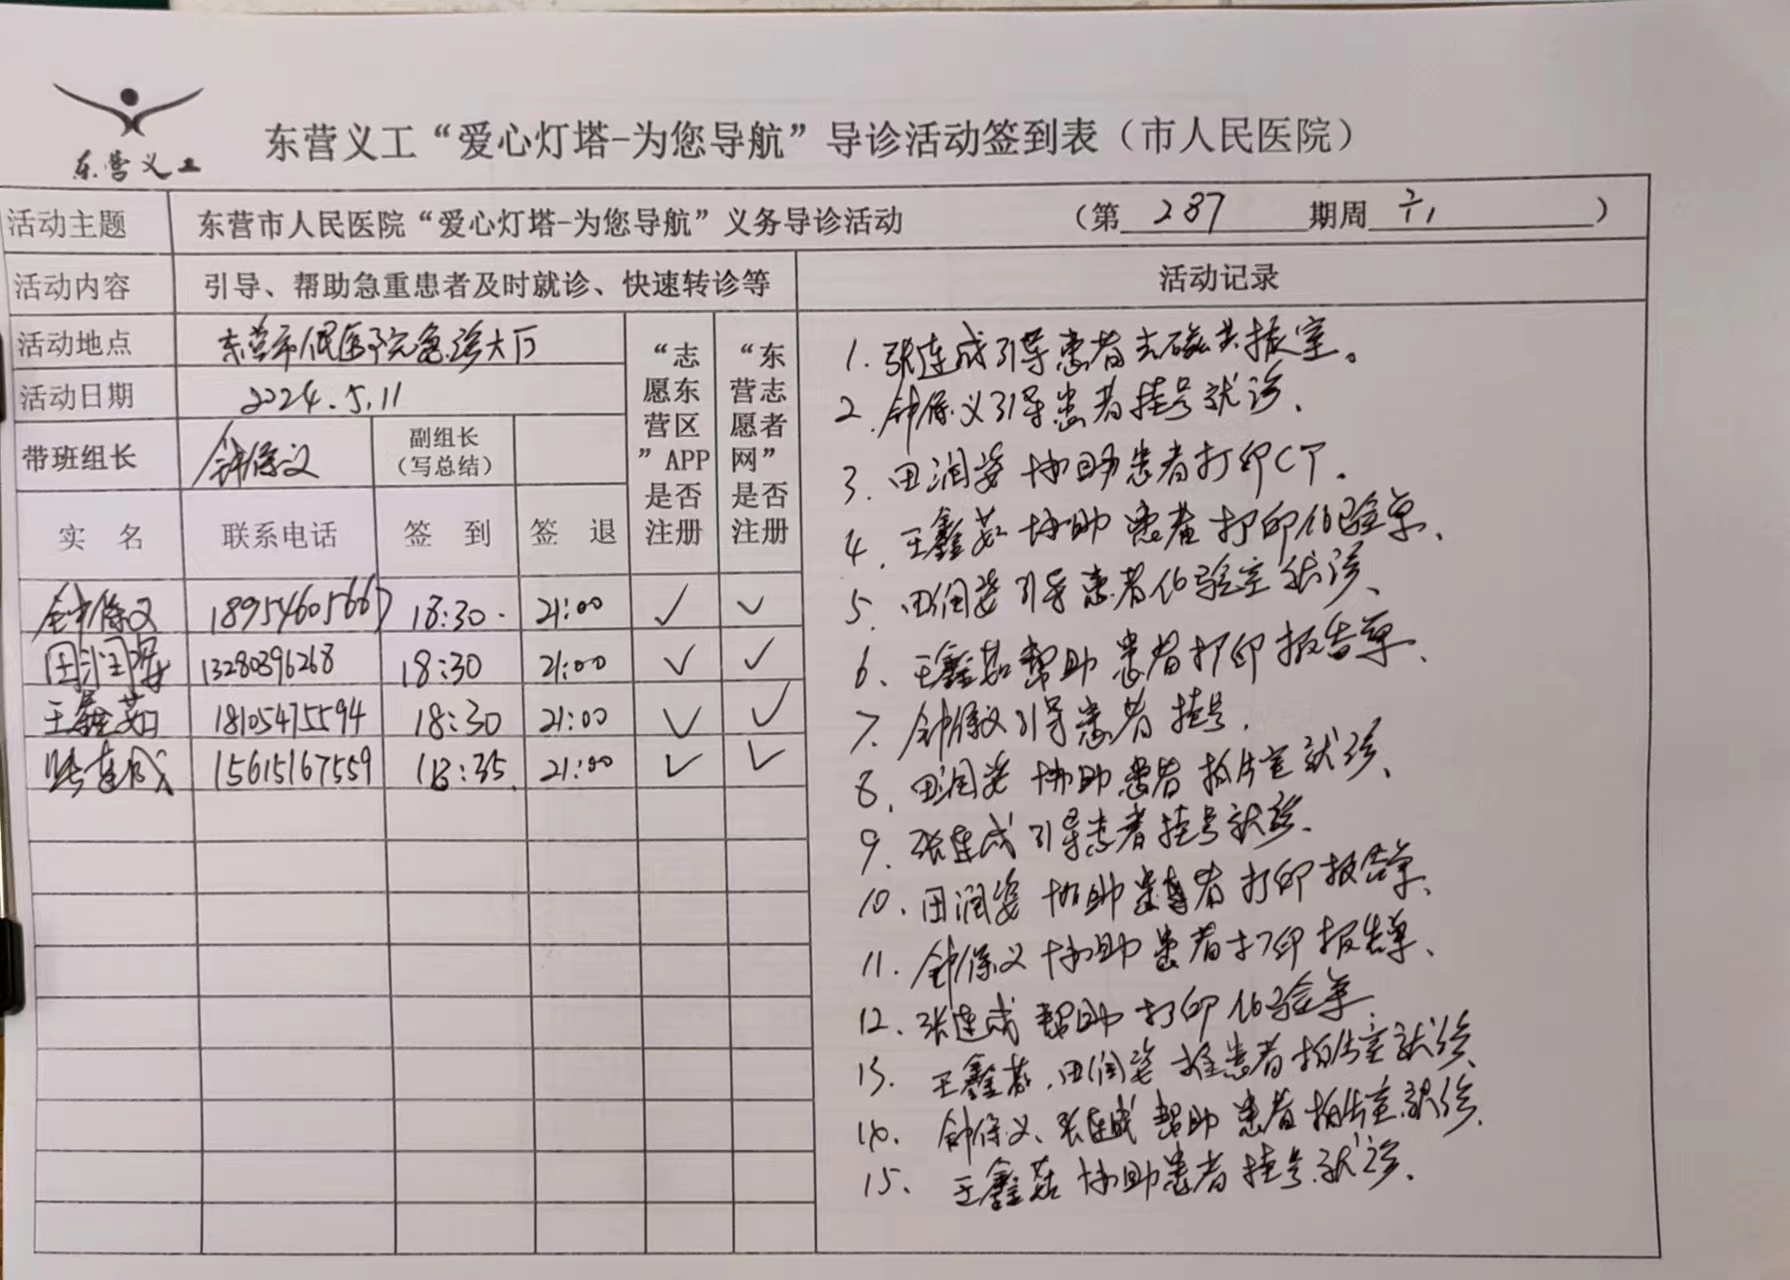 东营义工
东营义工“爱心灯塔-为您导航”导诊活动签到表（市人民医院）
活动主题 东营市人民医院“爱心灯塔-为您导航”义务导诊活动 （第 287 期周 六 ）
活动内容 引导、帮助急重患者及时就诊、快速转诊等 活动记录
活动地点 东营市人民医院急诊大厅
活动日期 2024.5.11
带班组长 钟保义 副组长（写总结）
“志愿东营区”APP是否注册
“东营志愿者网”是否注册
实 名 联系电话 签 到 签 退
钟保义 18954605667 18:30 21:00 ✓ ✓
田润姿 13280396268 18:30 21:00 ✓ ✓
王鑫茹 18105475594 18:30 21:00 ✓ ✓
张连成 15615167559 18:35 21:00 ✓ ✓
1. 张连成引导患者去磁共振室。
2. 钟保义引导患者挂号就诊、
3. 田润姿 协助患者打印CT.
4. 王鑫茹 协助 患者 打印化验单、
5. 田润姿 引导患者化验室就诊、
6. 王鑫茹帮助 患者打印 报告单、
7. 钟保义引导患者 挂号.
8. 田润姿 协助 患者 拍片室就诊、
9. 张连成 引导患者 挂号就诊.
10. 田润姿 协助 患者 打印报告单、
11. 钟保义 协助 患者打印 报告单、
12. 张连成 帮助 打印 化验单
13. 王鑫茹、田润姿 推患者拍片室就诊、
14. 钟保义、张连成 帮助 患者 拍片室就诊.
15. 王鑫茹 协助患者 挂号就诊.